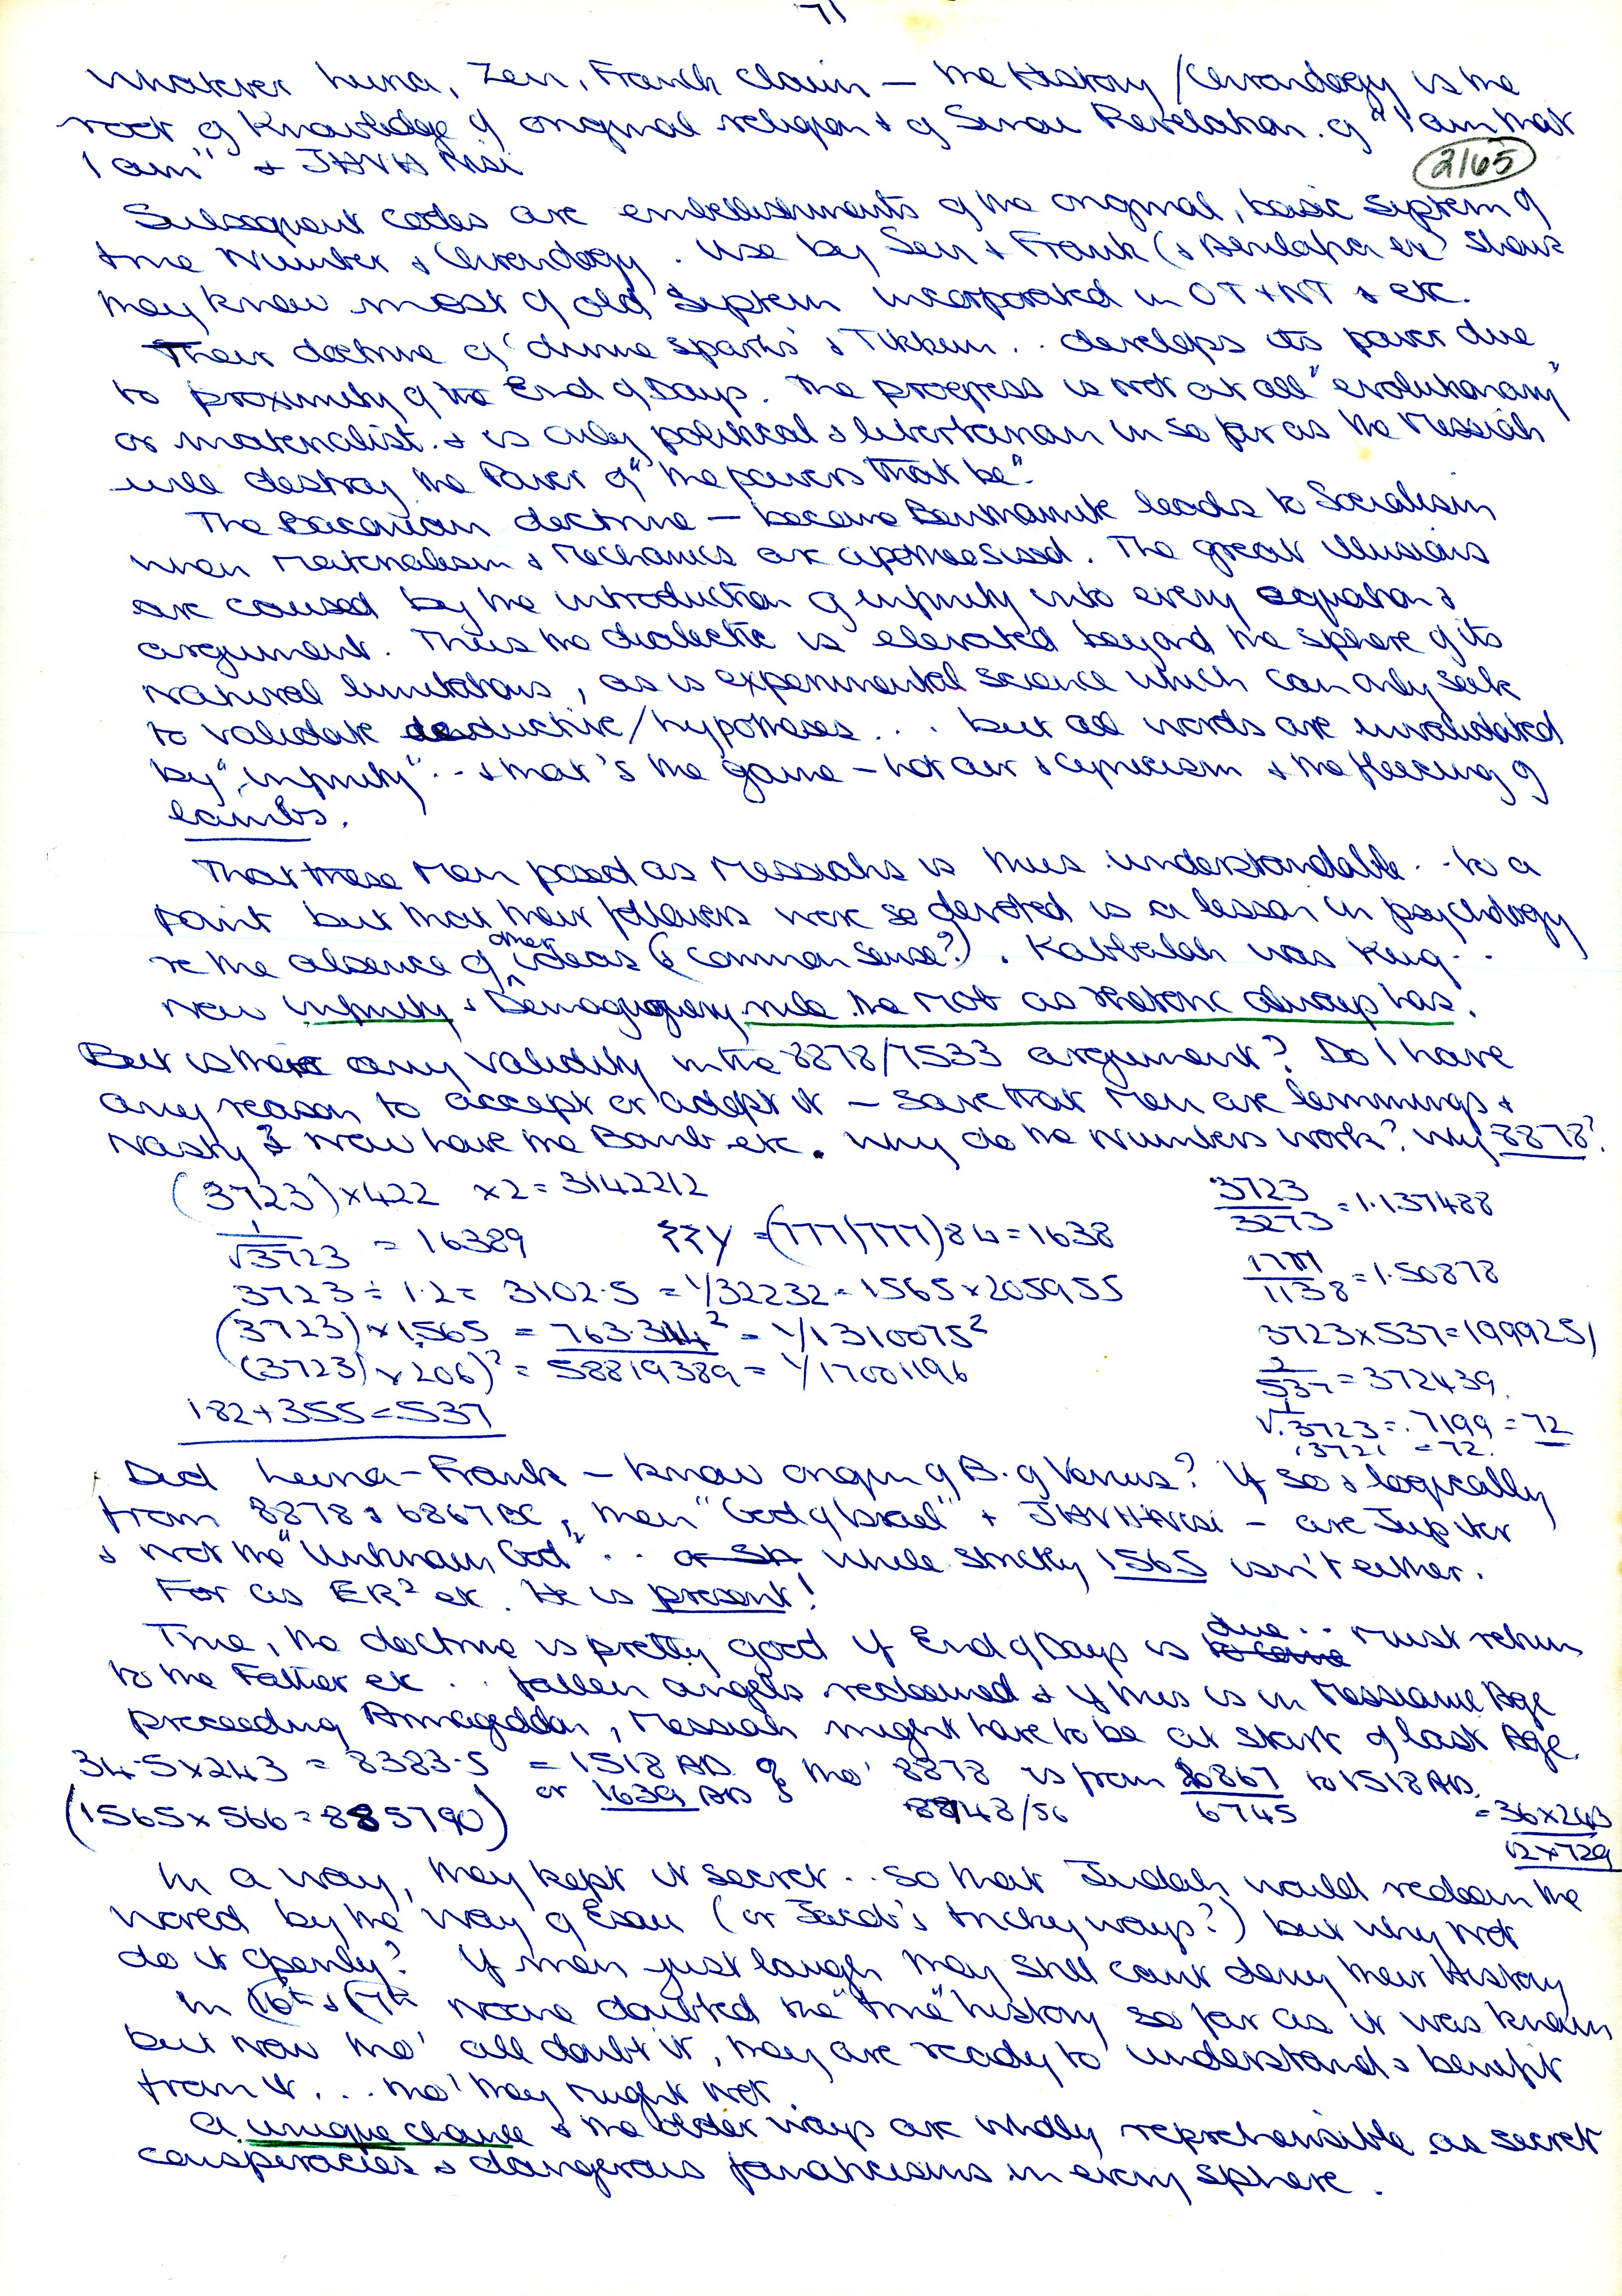 71
Whatever Luria, Zevi, Frank claim — the History / Chronology is the
root of Knowledge of original religion & of Sinai Revelation. of "I am that
I am" & JAVA Risi
2165
Subsequent codes are embellishments of the original, basic system of
time Number & Chronology. Use by Sevi & Frank (& etc) shows
they knew most of old system incorporated in OT & NT & etc.
Their doctrine of 'divine sparks' & Tikkun .. develops its power due
to proximity of the End of Days. The progress is not at all "evolutionary"
or materialist. & is only political & libertarian in so far as the Messiah
will destroy the Power of "the powers that be".
The Baconian doctrine — become Benthamite leads to Socialism
when Materialism & Mechanics are apotheosised. The great illusions
are caused by the introduction of infinity into every equation &
argument. Thus the dialectic is elevated beyond the sphere of its
natural limitations, as is experimental science which can only seek
to validate deductive/hypotheses... but all words are invalidated
by "infinity".. & that's the game — hot air & cynicism & the fleecing of
lambs.
That these Men posed as Messiahs is thus understandable.. to a
point but that their followers were so devoted is a lesson in psychology
re the absence of other ideas (& common sense?). Kabbalah was King..
now infinity & Demagoguery rule the Mob as rhetoric always has.
But is there any validity in the 8878/7533 argument? Do I have
any reason to accept or adopt it — save that Men are lemmings &
Nasty & now have the Bomb etc. Why do the Numbers work? Why 8878?
(3723) x 422 x 2 = 3142212
3723/3273 = 1.137488
1/√3723 = 16389 = (777/777) 84 = 1638
1717/1138 = 1.50878
3723 ÷ 1.2 = 3102.5 = 1/32232 = 1565 x 205955
(3723) x 1.565 = 763.344² = 1/1310075²
3723 x 537 = 1999251
(3723) x 206)² = 58819389 = 1/17001196
2/537 = 372439
182 + 355 = 537
√.3723 = .7199 = 72
.3721 = 72.
Did Luria – Frank – know origin of B. of Venus? If so & logically
from 8878 & 6867 BC, then "God of Israel" + JAVHArisi – are Jupiter
& not the "Unknown God" .. or SN while strictly 1565 isn't either.
For as ER² etc. He is present!
True, the doctrine is pretty good if End of Days is to come due .. Must return
to the Father etc .. fallen angels redeemed & if this is in Messianic Age
preceeding Armageddon, Messiah might have to be at start of last Age.
34.5 x 243 = 8383.5 = 1518 AD & tho' 8878 is from 6867 to 1518 AD
(1565 x 566 = 885790) or 1639 AD 8748/56 6745 = 36 x 243
12 x 729
In a way, they kept it secret .. so that Judah would redeem the
word by the way of Esau (or Jacob's tricky ways?) but why not
do it openly? If men just laugh they still can't deny their History
In 16th & 17th noone doubted the "true" history so far as it was known
but now tho' all doubt it, they are ready to understand & benefit
from it... tho' they might not.
A unique chance & the older ways are wholly reprehensible as secret
conspiracies & dangerous fanaticisms in every sphere.